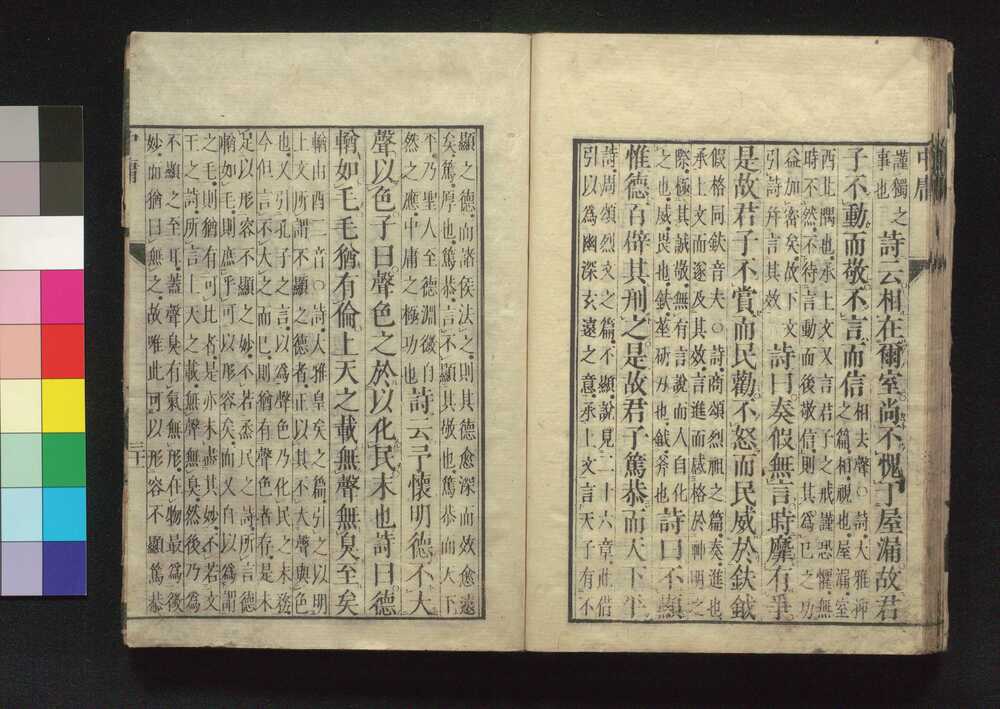 中庸
謹獨之
事也
詩云相在爾室尚不愧于屋漏故君
子不動而敬不言而信
相去聲○詩大雅抑
之篇相視也屋漏室
西北隅也承上文又言君子之戒謹恐懼無
時不然不待言動而後敬信則其爲已之功
益加密矣故下文
引詩幷言其效
詩曰奏假無言時靡有爭
是故君子不賞而民勸不怒而民威於鈇鉞
假格同鈇音夫○詩商頌烈祖之篇奏進也
承上文而遂及其效言進而感格於神明之
際極其誠敬無有言說而人自化
之也威畏也鈇莝斫刀也鉞斧也
詩曰不顯
惟德百辟其刑之是故君子篤恭而天下平
詩周頌烈文之篇不顯說見二十六章此借
引以爲幽深玄遠之意承上文言天子有不
顯之德而諸侯法之則其德愈深而效愈遠
矣篤厚也篤恭言不顯其敬也篤恭而天下
平乃聖人至德淵微自
然之應中庸之極功也
詩云予懷明德不大
聲以色子曰聲色之於以化民末也詩曰德
輶如毛毛猶有倫上天之載無聲無臭至矣
輶由酉二音○詩大雅皇矣之篇引之以明
上文所謂不顯之德者正以其不大聲與色
也又引孔子之言以爲聲色乃化民之末務
今但言不大之而已則猶有聲色者存是未
足以形容不顯之妙不若烝民之詩所言德
輶如毛則庶乎可以形容矣而又自以爲謂
之毛則猶有可比者是亦未盡其妙不若文
王之詩所言上天之載無聲無臭然後乃爲
不顯之至耳蓋聲臭有氣無形在物最爲微
妙而猶曰無之故唯此可以形容不顯篤恭
中庸